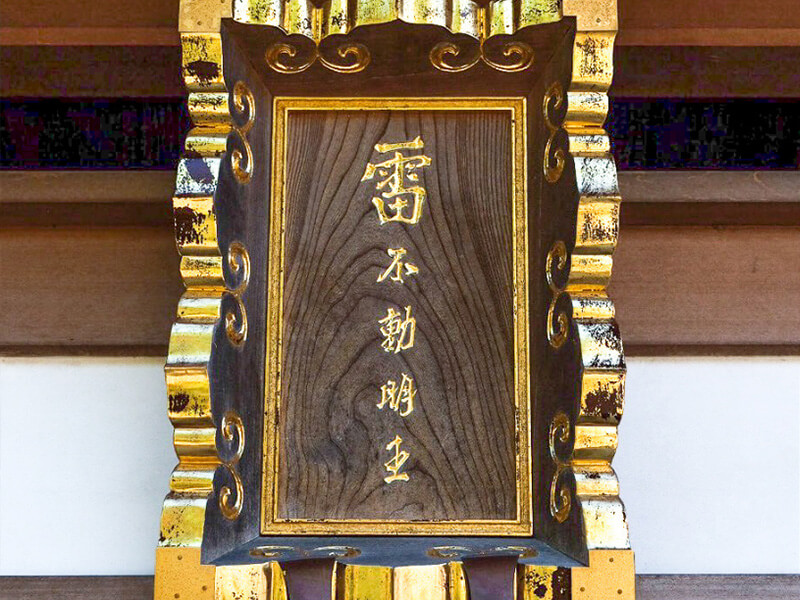 雷不動明王